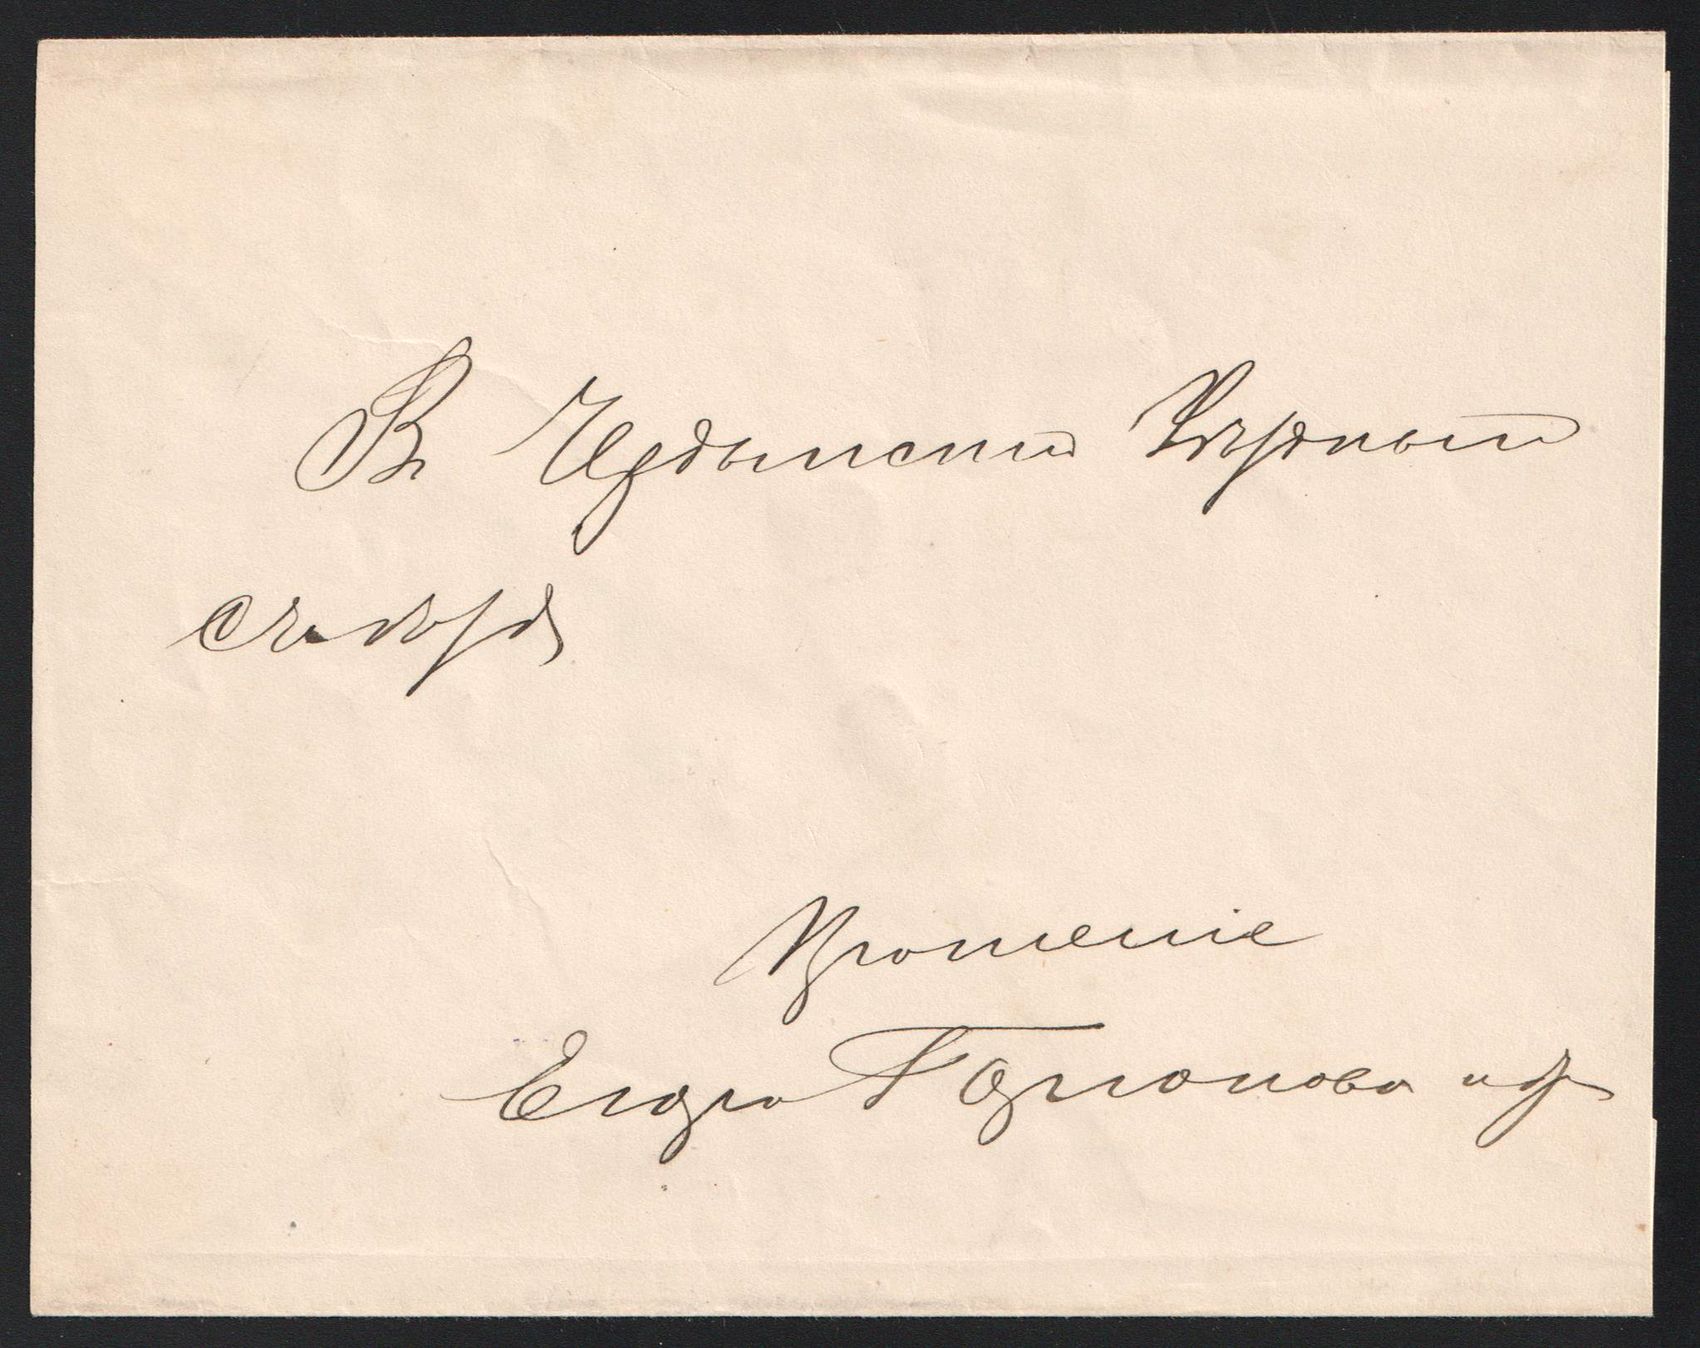 Въ Чердынскій Уѣздный
съѣздъ
Прошеніе
Егора Горюнова